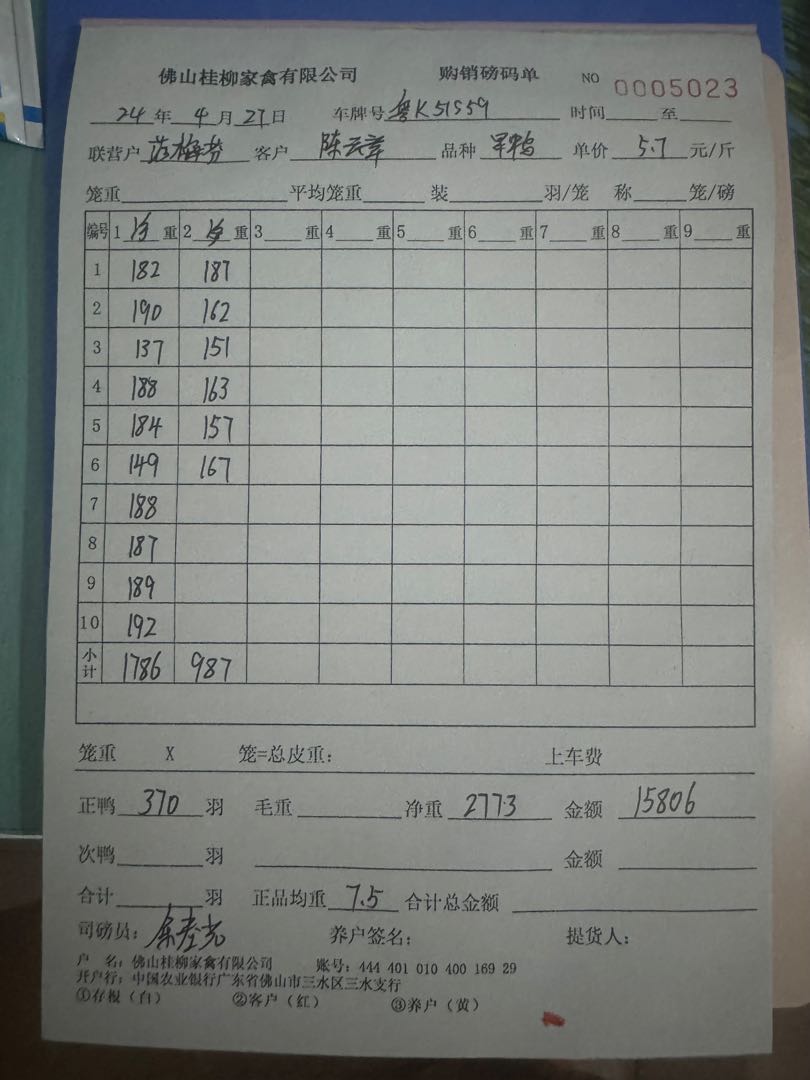 佛山桂柳家禽有限公司 购销磅码单 NO 0005023
24年4月27日 车牌号粤K51S59 时间 至
联营户 范梅芬 客户 陈云 品种 单价 5.7 元/斤
笼重 平均笼重 装 羽/笼 称 笼/磅
编号 1 净 重 2 净 重 3 重 4 重 5 重 6 重 7 重 8 重 9 重
1 182 187
2 190 162
3 137 151
4 188 163
5 184 157
6 149 167
7 188
8 187
9 189
10 192
小计 1786 987
笼重 X 笼=总皮重: 上车费
正鸭 370 羽 毛重 净重 2773 金额 15806
次鸭 羽 金额
合计 羽 正品均重 7.5 合计总金额
司磅员: 养户签名: 提货人:
户 名: 佛山桂柳家禽有限公司 账号: 444 401 010 400 169 29
开户行: 中国农业银行广东省佛山市三水区三水支行
①存根(白) ②客户(红) ③养户(黄)